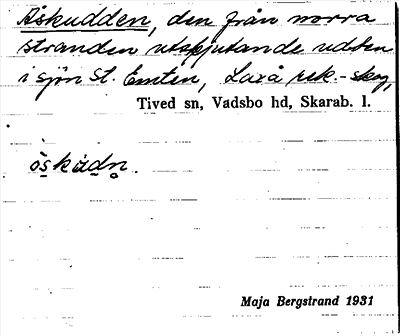 Åskudden, den från norra
stranden utskjutande udden
i sjön St. Emten, Laxå rek.-skog,
Tived sn, Vadsbo hd, Skarab. l.
òskùdn.
Maja Bergstrand 1931